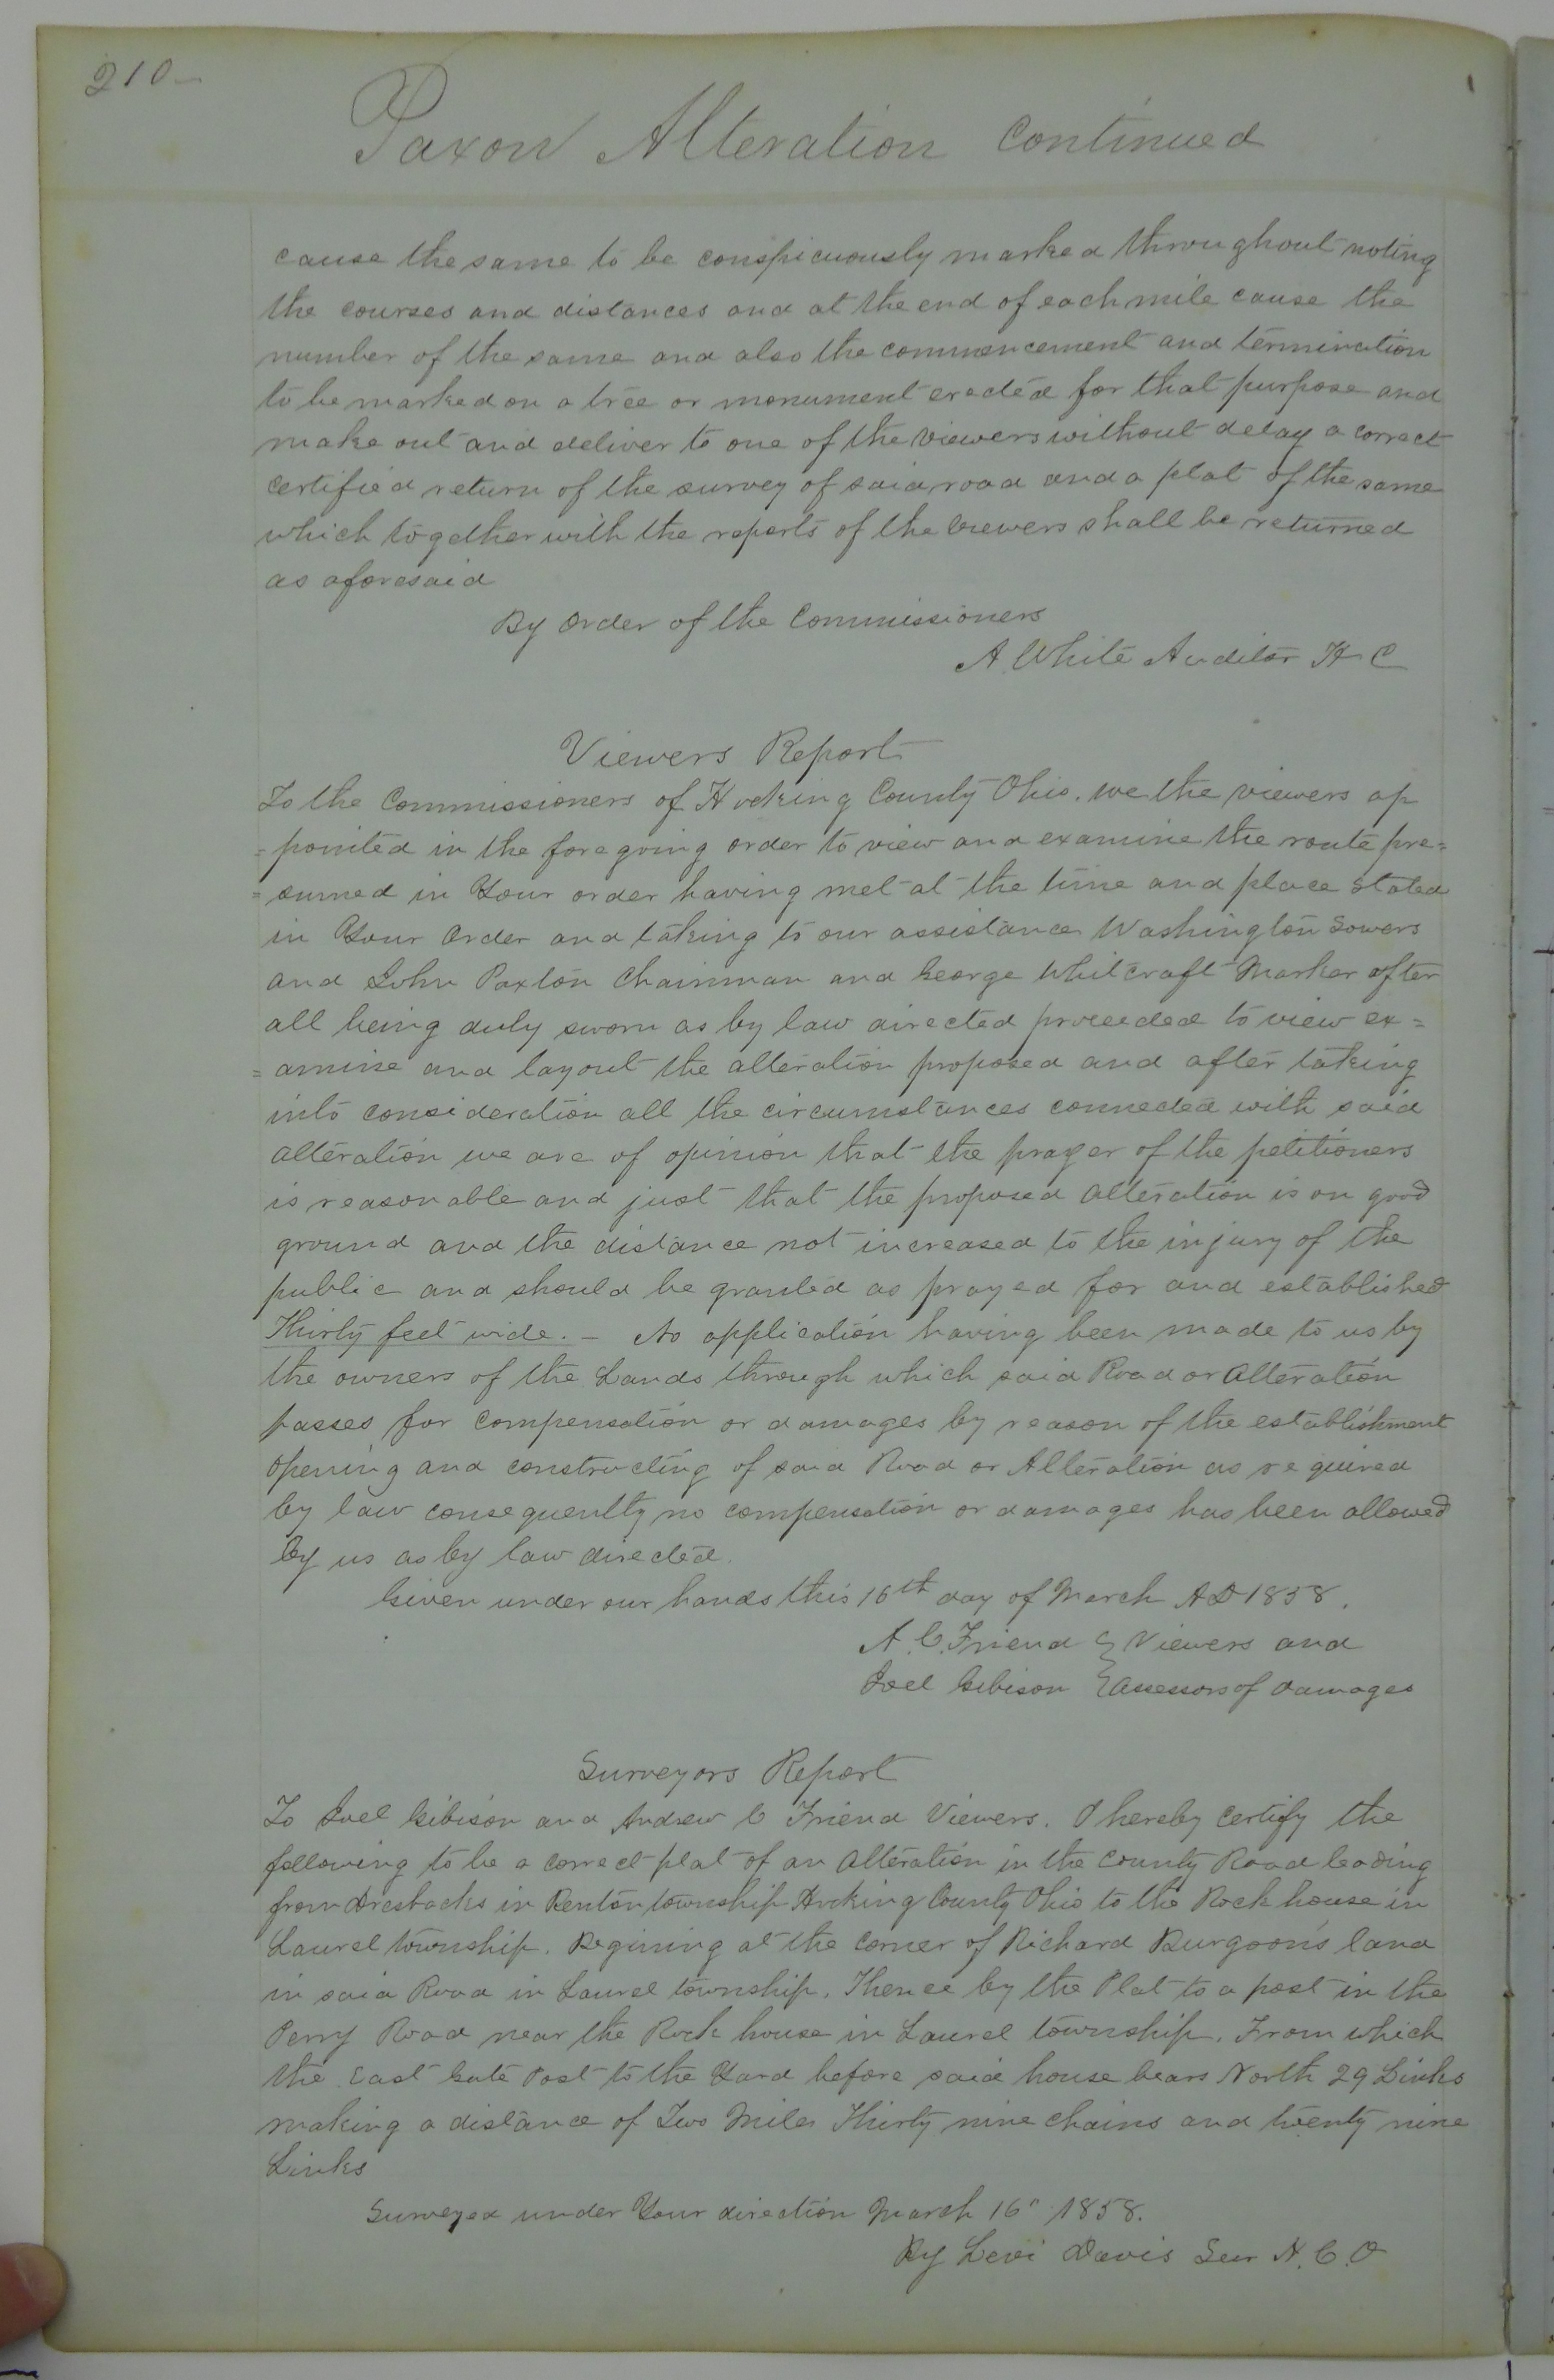 210
Paxon Alteration Continued
cause the same to be conspicuously marked throughout noting
the courses and distances and at the end of each mile cause the
number of the same and also the commencement and termination
to be marked on a tree or monument erected for that purpose and
make out and deliver to one of the viewers without delay a correct
certified return of the survey of said road and a plat of the same
which together with the reports of the viewers shall be returned
as aforesaid
By Order of the Commissioners
A. White Auditor H C
Viewers Report
To the Commissioners of Hocking County Ohio. we the viewers ap
= pointed in the foregoing order to view and examine the route pre=
= sumed in Your order having met at the time and place stated
in Your Order and taking to our assistance Washington Sowers
and John Paxton Chainman and George Whitcraft Marker after
all being duly sworn as by law directed proceeded to view ex=
= amine and layout the alteration proposed and after taking
into consideration all the circumstances connected with said
alteration we are of opinion that the prayer of the petitioners
is reasonable and just that the proposed Alteration is on good
ground and the distance not increased to the injury of the
public and should be granted as prayed for and established
Thirty feet wide. — No application having been made to us by
the owners of the Lands through which said Road or Alteration
passes for compensation or damages by reason of the establishment
opening and constructing of said Road or Alteration as required
by law consequently no compensation or damages has been allowed
by us as by law directed.
Given under our hands this 16th day of March AD 1858.
A. C. Friend } Viewers and
Joel Gibison } Assessors of damages
Surveyors Report
To Joel Gibison and Andrew C Friend Viewers. I hereby certify the
following to be a correct plat of an Alteration in the County Road leading
from Dresbachs in Benton township Hocking County Ohio to the Rock house in
Laurel township. Begining at the corner of Richard Burgoon's land
in said Road in Laurel township. Thence by the Plat to a post in the
Perry Road near the Rock house in Laurel township. From which
the East Gate Post to the Yard before said house bears North 29 Links
making a distance of Two Miles Thirty nine chains and twenty nine
Links
Surveyed under Your direction March 16" 1858.
By Levi Davis Sur H. C. O